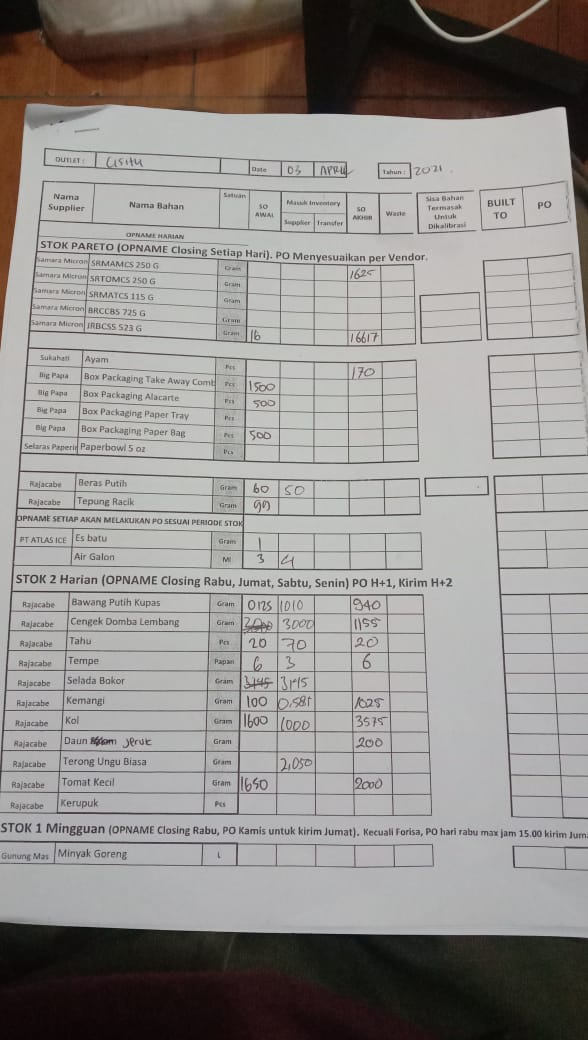 OUTLET : Cisitu Date 03 APRIL Tahun : 2021
Nama Supplier Nama Bahan Satuan SO AWAL Masuk Inventory Supplier Transfer SO AKHIR Waste Sisa Bahan Termasak Untuk Dikalibrasi BUILT TO PO
OPNAME HARIAN
STOK PARETO (OPNAME Closing Setiap Hari). PO Menyesuaikan per Vendor.
Samara Micron SRMAMCS 250 G Gram 1625
Samara Micron SRTOMCS 250 G Gram
Samara Micron SRMATCS 115 G Gram
Samara Micron BRCCBS 725 G Gram
Samara Micron JRBCSS 523 G Gram 16 16617
Sukahati Ayam Pcs 170
Big Papa Box Packaging Take Away Comb Pcs 1500
Big Papa Box Packaging Alacarte Pcs 500
Big Papa Box Packaging Paper Tray Pcs
Big Papa Box Packaging Paper Bag Pcs 500
Selaras Paperin Paperbowl 5 oz Pcs
Rajacabe Beras Putih Gram 60 50
Rajacabe Tepung Racik Gram
OPNAME SETIAP AKAN MELAKUKAN PO SESUAI PERIODE STOK
PT ATLAS ICE Es batu Gram 1
Air Galon Ml 3 4
STOK 2 Harian (OPNAME Closing Rabu, Jumat, Sabtu, Senin) PO H+1, Kirim H+2
Rajacabe Bawang Putih Kupas Gram 0125 1010 940
Rajacabe Cengek Domba Lembang Gram 3000 3000 1155
Rajacabe Tahu Pcs 20 70 20
Rajacabe Tempe Papan 6 3 6
Rajacabe Selada Bokor Gram 3145 3145
Rajacabe Kemangi Gram 100 0,585 1025
Rajacabe Kol Gram 1600 1000 3575
Rajacabe Daun jeruk Gram 200
Rajacabe Terong Ungu Biasa Gram 2,050
Rajacabe Tomat Kecil Gram 1650 2000
Rajacabe Kerupuk Pcs
STOK 1 Mingguan (OPNAME Closing Rabu, PO Kamis untuk kirim Jumat). Kecuali Forisa, PO hari rabu max jam 15.00 kirim Juma
Gunung Mas Minyak Goreng L